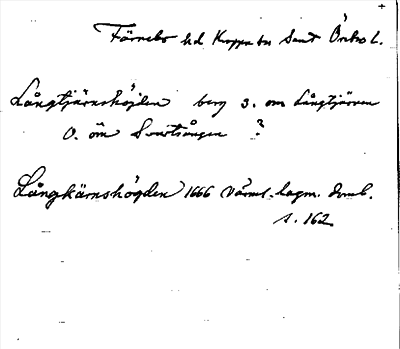 Färnebo hd Kroppa sn samt Örebro l.
Långtjärnshöjden berg S. om Långtjärnen
O. om Svartsången ?
Långkärnshögden 1666 Värml. lagm. domb.
s. 162